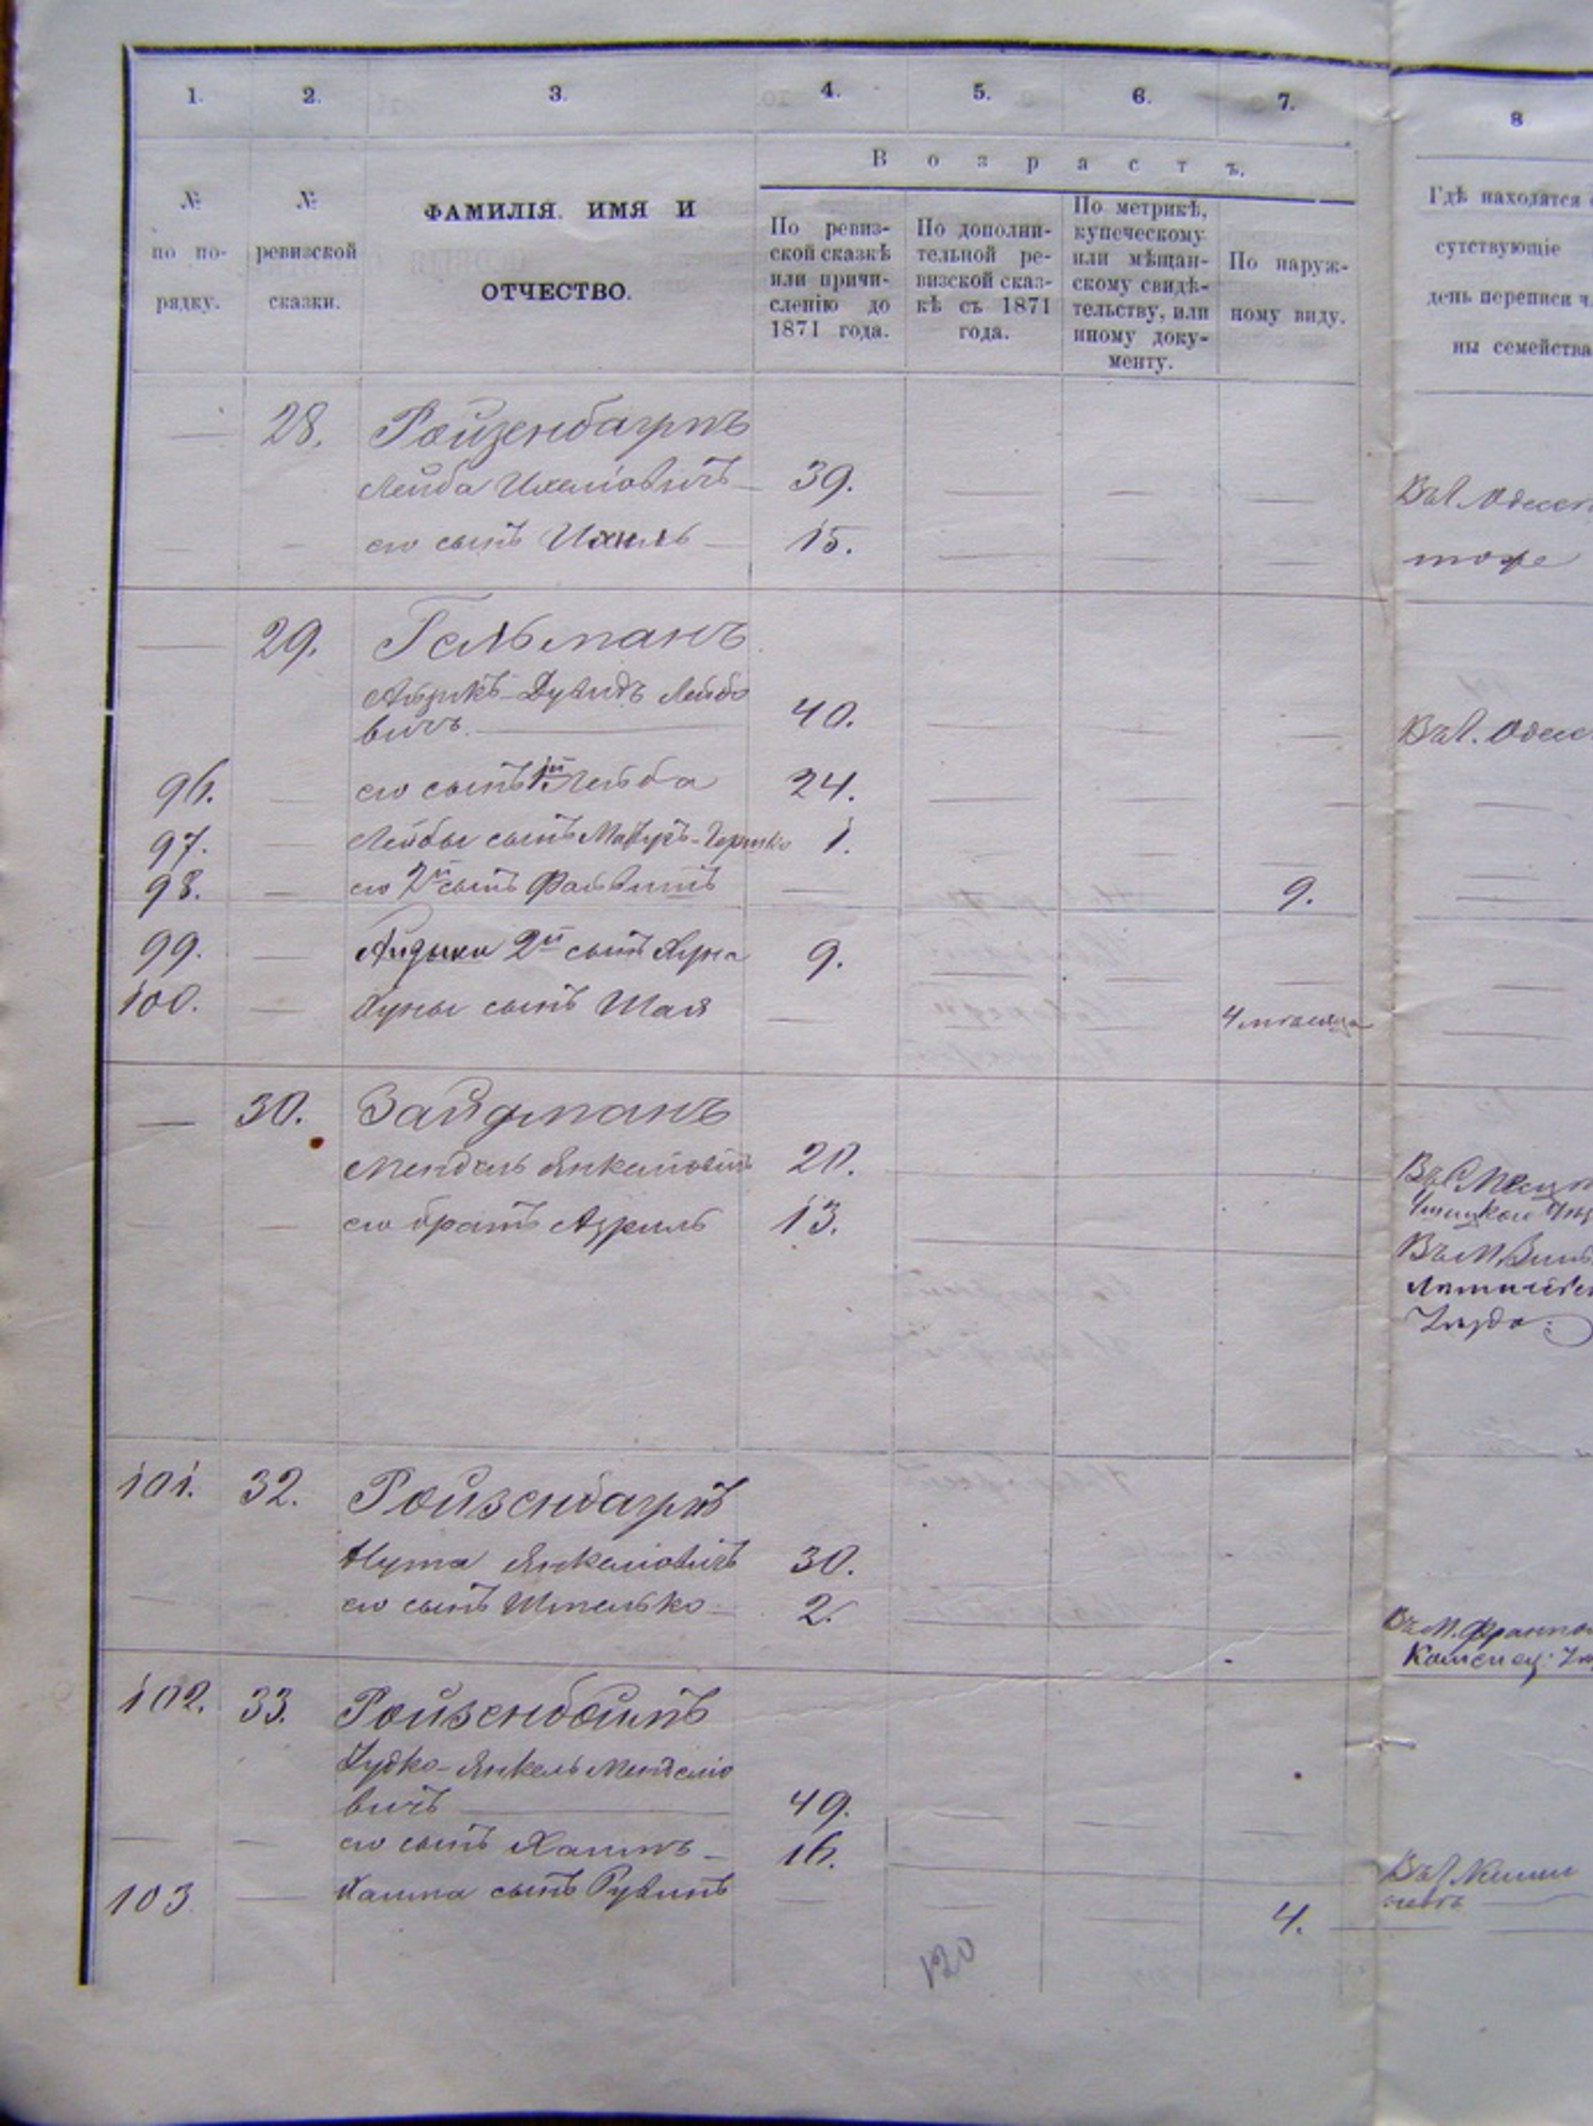 1. 2. 3. 4. 5. 6. 7. 8
В о з р а с т ъ.
№ по по-рядку.
№ ревизской сказки.
ФАМИЛІЯ, ИМЯ И
ОТЧЕСТВО.
По ревиз-
ской сказкѣ
или причи-
сленію до
1871 года.
По дополни-
тельной ре-
визской сказ-
кѣ съ 1871
года.
По метрикѣ,
купеческому
или мѣщан-
скому свидѣ-
тельству, или
иному доку-
менту.
По наруж-
ному виду.
Гдѣ находятся
сутствующіе
день переписи ч
ны семейства
— 28. Ройзенбаумъ
Лейба Ихелiовичъ — 39. — — — Въ г. Одесс
— — его сынъ Ихиль — 15. — — — тоже
— 29. Гельманъ
Дувидъ Лейбо
вичъ. — 40. — — Въ г. Одесс
96. — его сынъ 1й Лейба 24. — — —
97. — Лейбы сынъ Гершко 1. — — —
98. — его 2й сынъ Файвишъ — 9. —
99. — 2й сынъ Хуна 9. — — — —
100. — Хуны сынъ Шая — — — 4 мѣсяца —
— 30. Зайдманъ
Мендель Янкелiовичъ 20. —
— — его братъ Азриль 13. —
Уѣзда.
101. 32. Ройзенбаумъ
Нута Янкелiовичъ 30.
его сынъ Шмелько — 2. —
Въ м. Фрампо
Каменец. У
102. 33. Ройзенбаумъ
Юдко-Янкель Менделiо
вичъ — 49. — — —
— — его сынъ Хаимъ — 16. — Въ г. Киши
невѣ —
103 — Хаима сынъ Рувинъ — — — 4. —
120